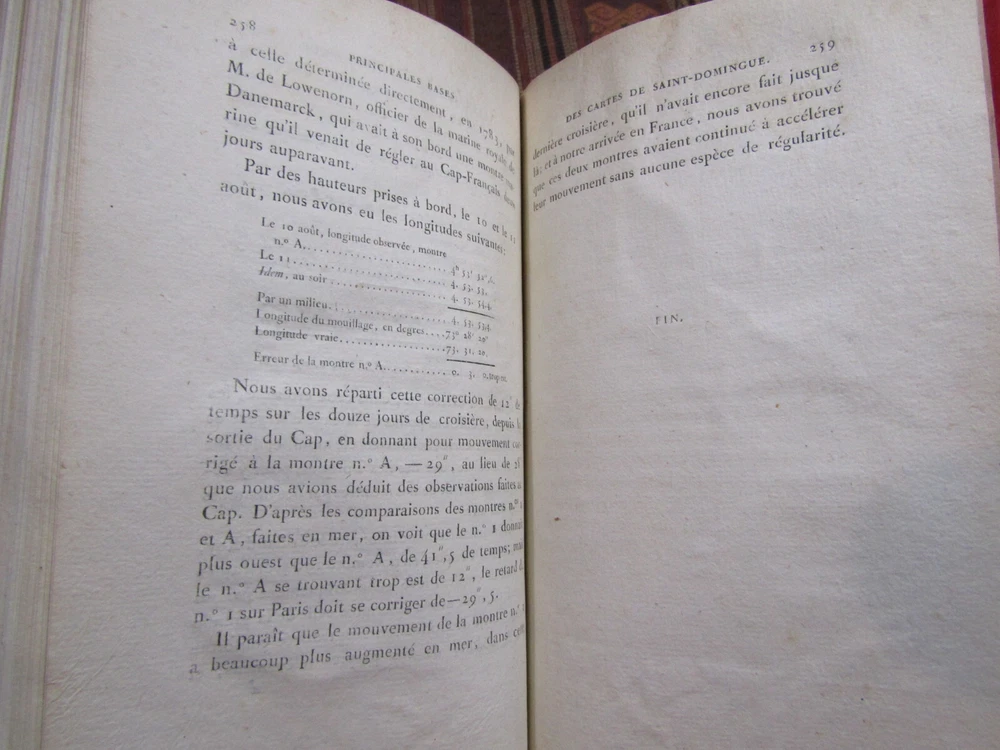 258
PRINCIPALES BASES
à celle déterminée directement, en 1783, par
M. de Lowenorn, officier de la marine royale de
Danemarck, qui avait à son bord une montre
rine qu'il venait de régler au Cap-Français
jours auparavant.
Par des hauteurs prises à bord, le 10 et le 11
août, nous avons eu les longitudes suivantes:
Le 10 août, longitude observée, montre
n.° A. 4h 53' 52"
Le 11. 4. 53. 53.
Idem, au soir 4. 53. 54.
Par un milieu. 4. 53. 53,4
Longitude du mouillage, en degrés. 73° 28' 20"
Longitude vraie. 73. 31. 20.
Erreur de la montre n.° A. 0. 3. 0. trop est.
Nous avons réparti cette correction de 12" de
temps sur les douze jours de croisière, depuis la
sortie du Cap, en donnant pour mouvement cor-
rigé à la montre n.° A, —29", au lieu de 28"
que nous avions déduit des observations faites au
Cap. D'après les comparaisons des montres n.°
et A, faites en mer, on voit que le n.° 1 donnait
plus ouest que le n.° A, de 41",5 de temps; mais
le n.° A se trouvant trop est de 12", le retard du
n.° 1 sur Paris doit se corriger de —29",5.
Il paraît que le mouvement de la montre n.°
a beaucoup plus augmenté en mer, dans cette
259
DES CARTES DE SAINT-DOMINGUE.
dernière croisière, qu'il n'avait encore fait jusque
là; et à notre arrivée en France, nous avons trouvé
que ces deux montres avaient continué à accélérer
leur mouvement sans aucune espèce de régularité.
FIN.